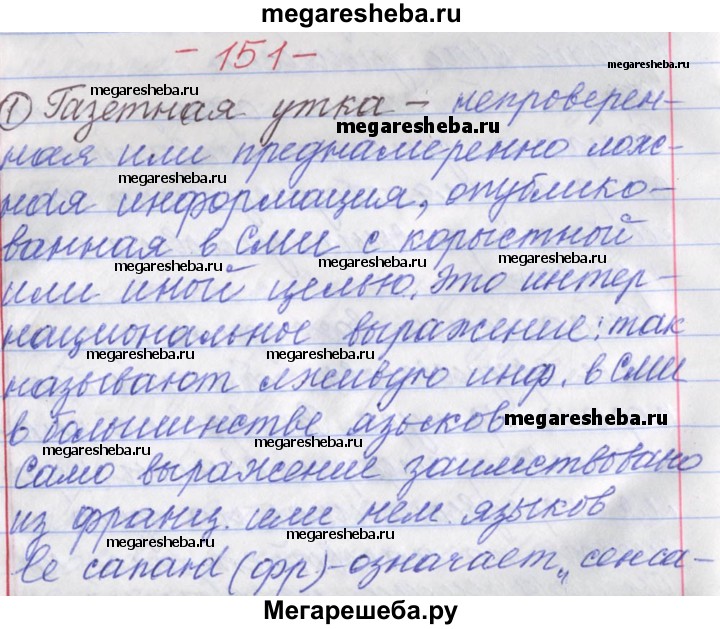 megaresheba.ru
- 151 -
megaresheba.ru megaresheba.ru
① Газетная утка - непроверен-
megaresheba.ru
ная или преднамеренно лож-
megaresheba.ru megaresheba.ru
ная информация, опублико-
ванная в СМИ с корыстной
megaresheba.ru megaresheba.ru
или иной целью. Это интер-
национальное выражение: так
megaresheba.ru megaresheba.ru
называют лживую инф. в СМИ
в большинстве языков
megaresheba.ru
megaresheba.ru
Само выражение заимствовано
из франц. или нем. языков
megaresheba.ru megaresheba.ru
le canard (фр) - означает „сенса-
Мегарешеба.ру